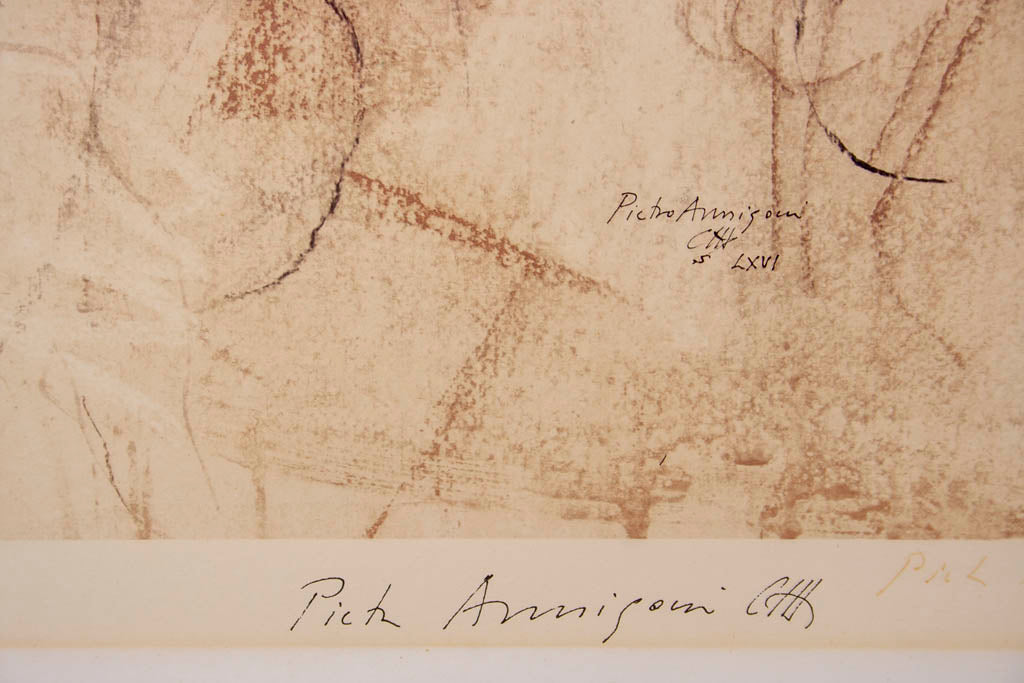 Pietro Annigoni
CHH
5 LXVI
Pietr Annigoni CHH